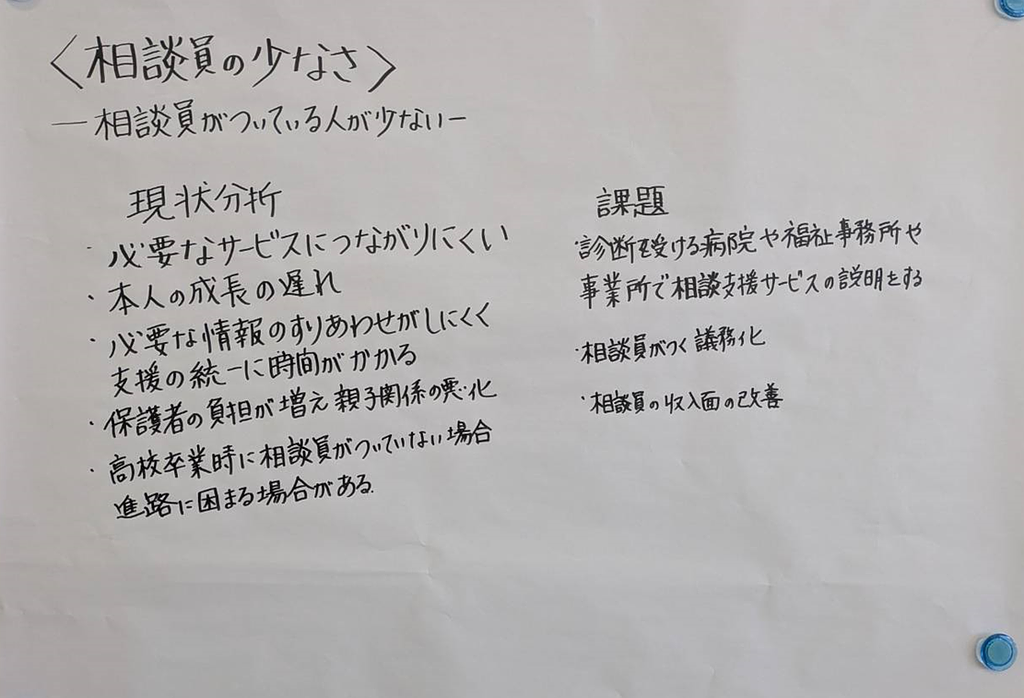 〈相談員の少なさ〉
―相談員がついている人が少ない―
現状分析
・必要なサービスにつながりにくい
・本人の成長の遅れ
・必要な情報のすりあわせがしにくく
支援の統一に時間がかかる
・保護者の負担が増え親子関係の悪化
・高校卒業時に相談員がついていない場合
進路に困まる場合がある.
課題
・診断を受ける病院や福祉事務所や
事業所で相談支援サービスの説明をする
・相談員がつく議務化
・相談員の収入面の改善